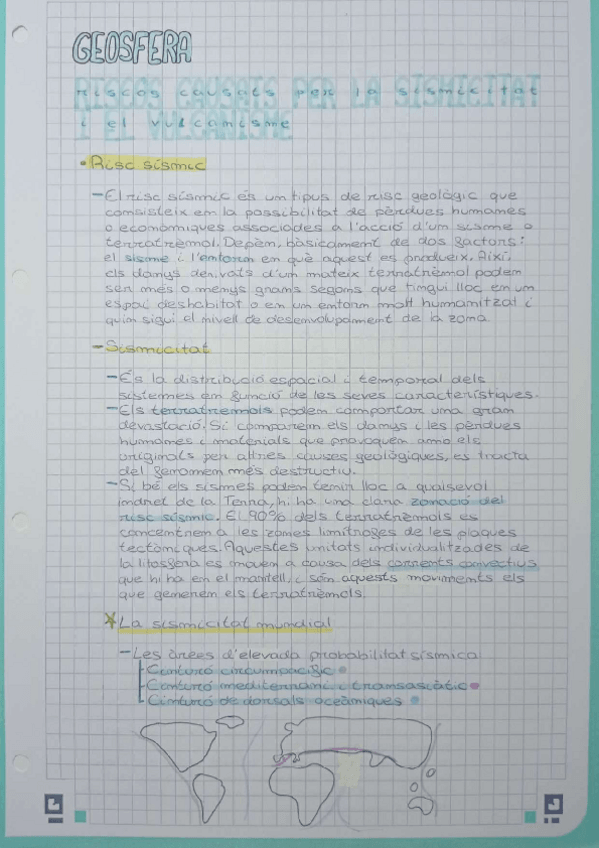 GEOSFERA
Riscos causats per la sismicitat
i el vulcanisme
• Risc sísmic
- El risc sísmic és un tipus de risc geològic que
consisteix en la possibilitat de pèrdues humanes
o econòmiques associades a l'acció d'un sisme o
terratrèmol. Depèn, bàsicament de dos factors:
el sisme i l'entorn en què aquest es produeix. Així,
els damys derivats d'un mateix terratrèmol podem
ser més o menys grans segons que tingui lloc en um
espai deshabitat o en um entorn molt humanitzat i
quin sigui el nivell de desenvolupament de la zona.
- Sismicitat
- És la distribució espacial i temporal dels
sistemes en funció de les seves característiques.
- Els terratrèmols podem comportar una gran
devastació. Si comparem els damys i les pèrdues
humanes i materials que provoquen amb els
originats per altres causes geològiques, es tracta
del fenomen més destructiu.
- Si bé els sismes podem tenir lloc a qualsevol
indret de la Terra, hi ha una clara zonació del
risc sísmic. El 90% dels terratrèmols es
concentren a les zones limítrofes de les plaques
tectòniques. Aquestes unitats individualitzades de
la litosfera es mouen a causa dels corrents convectius
que hi ha en el mantell, i són aquests moviments els
que generen els terratrèmols.
* La sismicitat mundial
- Les àrees d'elevada probabilitat sísmica
Cinturó circumpacífic
Cinturó mediterrani i transasiàtic
Cinturó de dorsals oceàniques